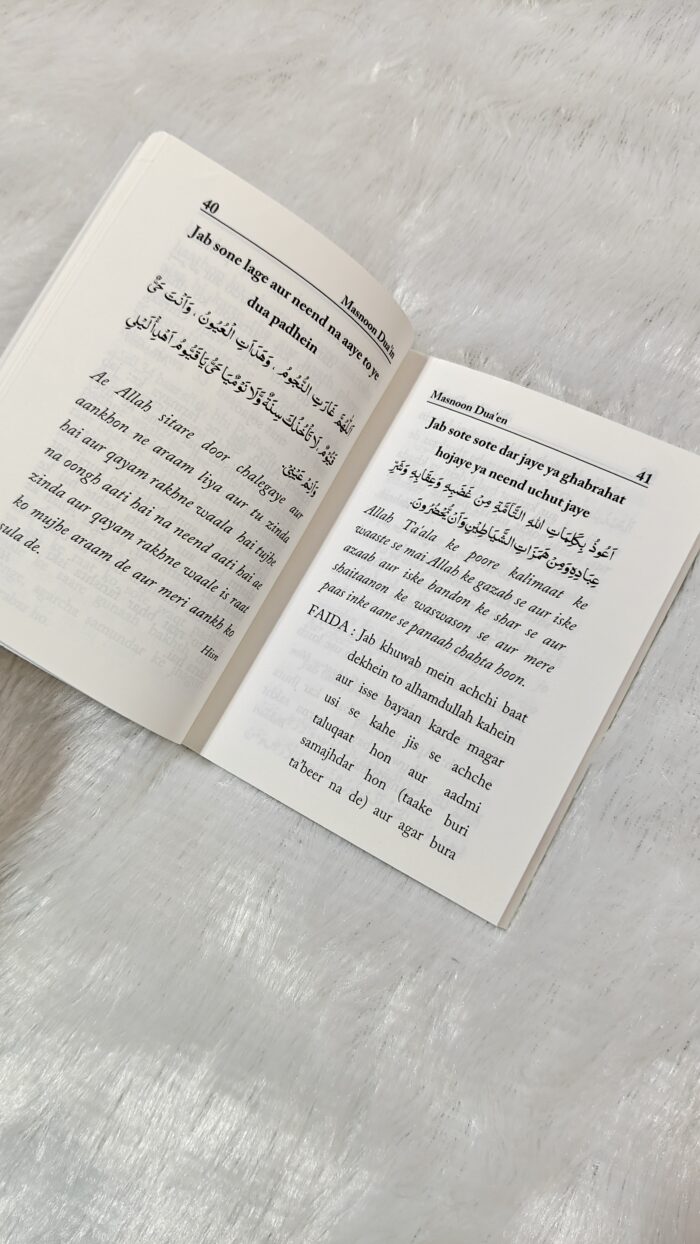 40
Masnoon Dua'in
Jab sone lage aur neend na aaye to ye
dua padhein
اَللّٰهُمَّ غَارَتِ النُّجُومُ ، وَهَدَأَتِ الْعُيُونُ ، وَأَنْتَ حَيٌّ
قَيُّوْمٌ لَا تَأْخُذُكَ سِنَةٌ وَّلَا نَوْمٌ يَا حَيُّ يَا قَيُّوْمُ اَهْدِأْ لَيْلِي
وَاَنِمْ عَيْنِيْ.
Ae Allah sitare door chalegaye aur
aankhon ne araam liya aur tu zinda
hai aur qayam rakhne waala hai tujhe
na oongh aati hai na neend aati hai ae
zinda aur qayam rakhne waale is raat
ko mujhe araam de aur meri aankh ko
sula de.
Hisn
Masnoon Dua'en
41
Jab sote sote dar jaye ya ghabrahat
hojaye ya neend uchut jaye
اَعُوذُ بِكَلِمَاتِ اللهِ التَّآمَّةِ مِنْ غَضَبِهِ وَعِقَابِهِ وَشَرِّ
عِبَادِهِ وَمِنْ هَمَزَاتِ الشَّيَاطِيْنِ وَأَنْ يَّحْضُرُوْنَ.
Allah Ta'ala ke poore kalimaat ke
waaste se mai Allah ke gazab se aur iske
azaab aur iske bandon ke shar se aur
shaitaanon ke waswason se aur mere
paas inke aane se panaah chahta hoon.
FAIDA : Jab khuwab mein achchi baat
dekhein to alhamdullah kahein
aur isse bayaan karde magar
usi se kahe jis se achche
taluqaat hon aur aadmi
samajhdar hon (taake buri
ta'beer na de) aur agar bura